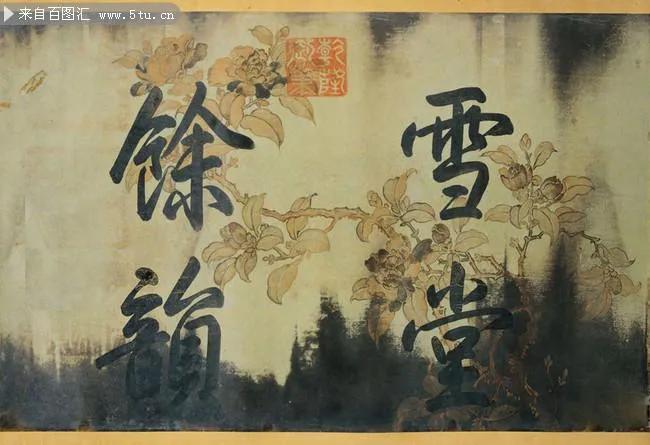 来自百图汇 www.5tu.cn
雪堂
餘韻
乾隆
御筆